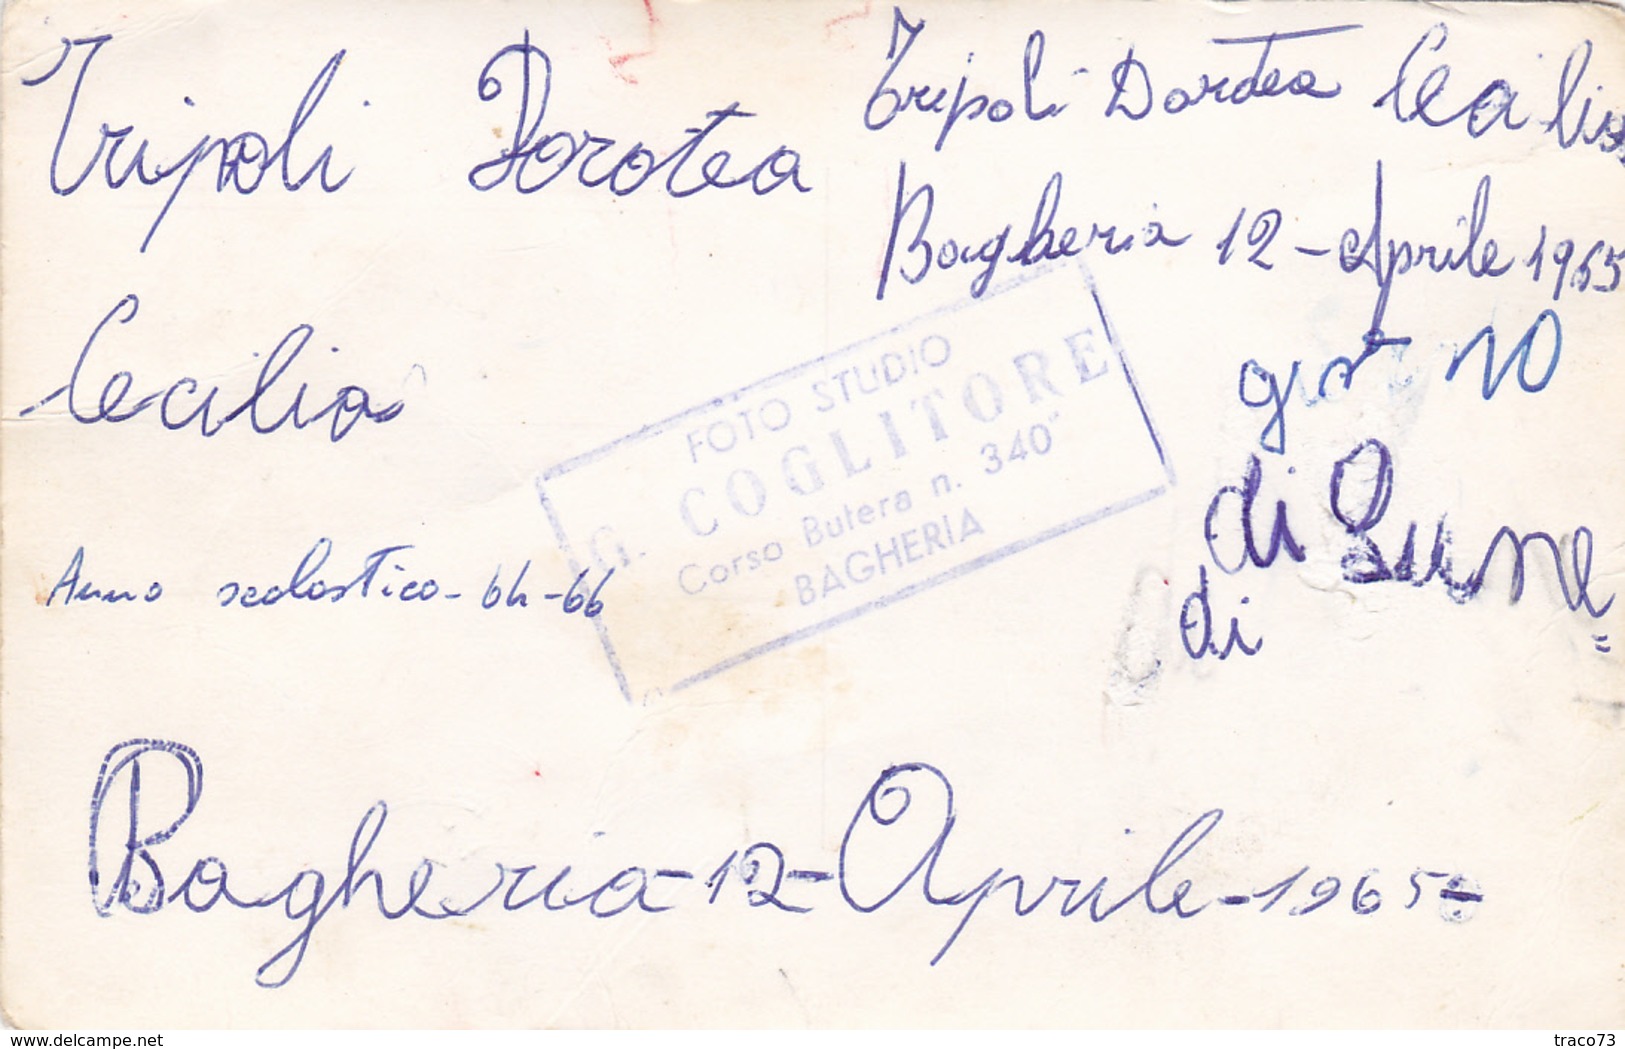 Tripoli Dorotea
Cecilia
Anno scolastico - 64-66
Tripoli Dorotea Cecilia
Bagheria 12 - Aprile 1965
giorno
di Lune=
di
FOTO STUDIO
G. COGLITORE
Corso Butera n. 340
BAGHERIA
Bagheria - 12 - Aprile - 1965 -
delcampe.net
traco73